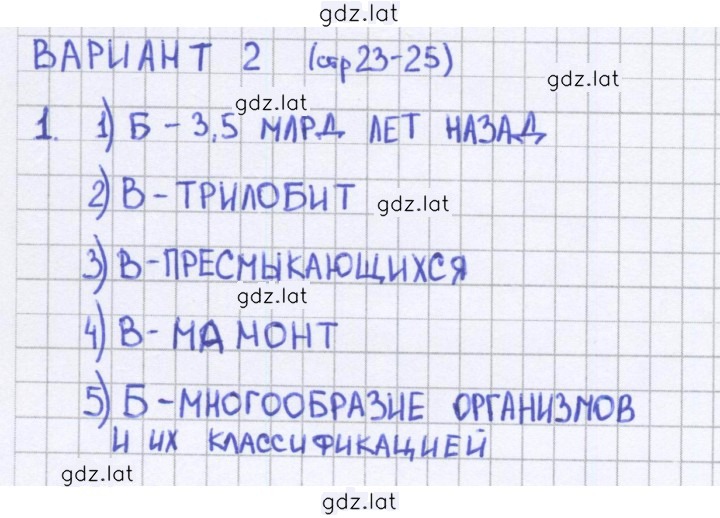 gdz.lat
ВАРИАНТ 2 (стр 23-25)
gdz.lat
gdz.lat
1. 1) Б - 3,5 МЛРД ЛЕТ НАЗАД
2) В - ТРИЛОБИТ
gdz.lat
3) В - ПРЕСМЫКАЮЩИХСЯ
gdz.lat
4) В - МАМОНТ
5) Б - МНОГООБРАЗИЕ ОРГАНИЗМОВ
И ИХ КЛАССИФИКАЦИЕЙ
gdz.lat
gdz.lat